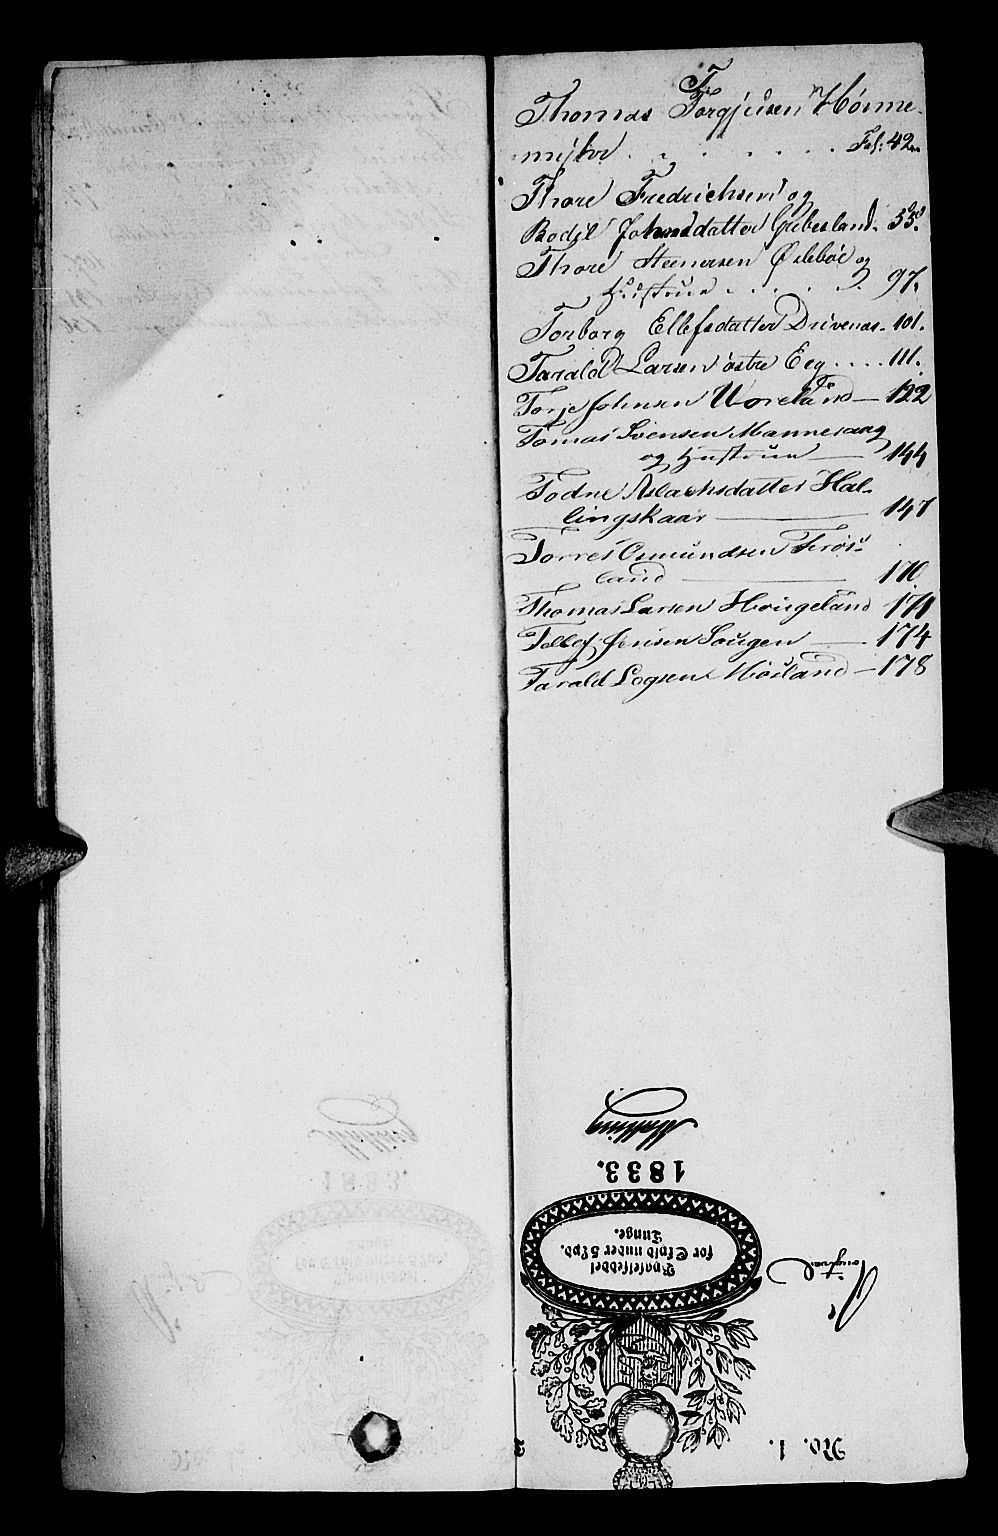 T.
Thomas Torgjusen Hønne-
myhr . . . . . . . Fol: 42.
Thore Fredrichsen og
Bodil Johnsdatter Grebesland. 55.
Thore Steenersen Øslebøe og
Hustrue . . . . . . 97.
Torborg Ellefsdatter Drivenæs. 101.
Tarald Larsen østre Eeg . . . . 111.
Torje Johnsen Uoreland — 122
Tomas Svensen Mannesaag
og Hustrue — 144
Todne Aslachsdatter Hal-
lingskaar — 147
Torres Osmundsen Frøs-
land — 170
Thomas Larsen Hougeland 171
Tellef Jensen Saugen — 174
Tarald Logsen Møsland — 178
Møhring
1833.
for Skyld under 5 Lpd.
Tunge.
No. 1.